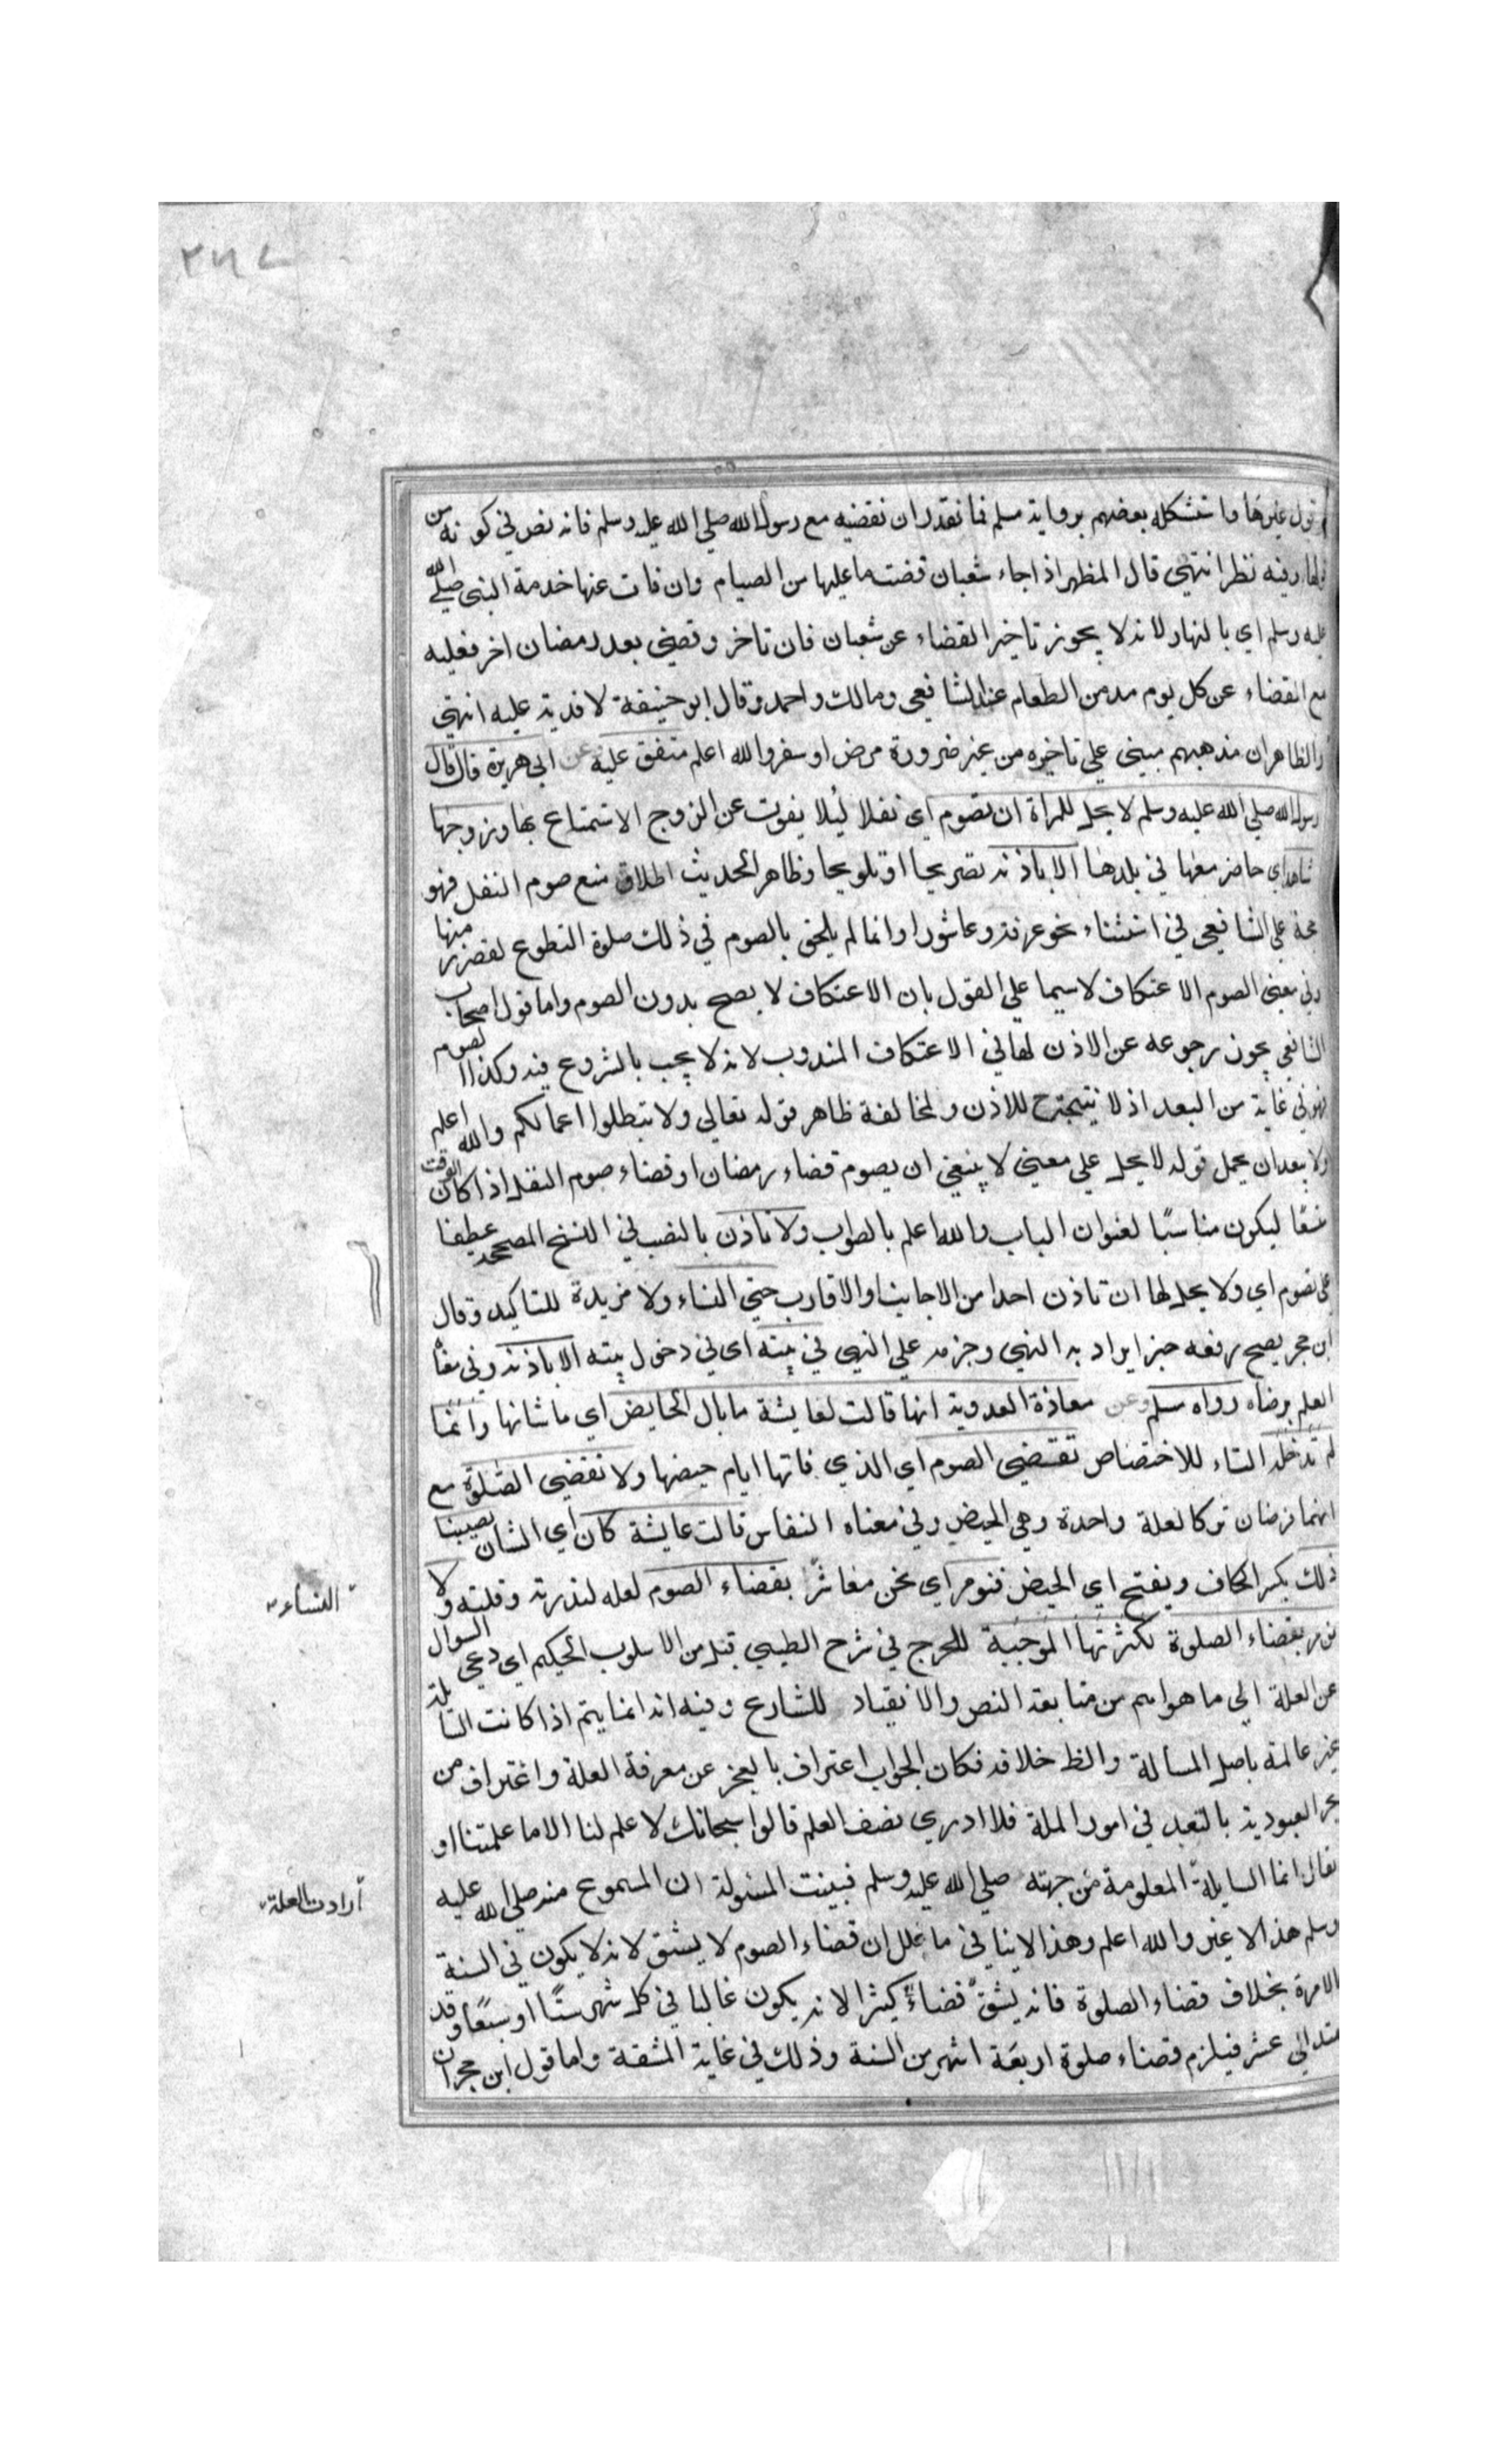 ٢٦٧
قول غيرها واستشكله بعضهم برواية مسلم فما نقدر ان نقضيه مع رسول الله صلي الله عليه وسلم فانه نص في كونه من
قولها وفيه نظر انتهي قال المظهر اذا جاء شعبان قضت ما عليها من الصيام وان فات عنها خدمة النبي صلي الله
عليه وسلم اي بالنهار لانه لا يجوز تاخير القضاء عن شعبان فان تاخر وقضي بعد رمضان اخر فعليه
مع القضاء عن كل يوم مد من الطعام عند الشافعي ومالك واحمد وقال ابو حنيفة لا فدية عليه انتهي
والظاهر ان مذهبهم مبني علي تاخيره من غير ضرورة مرض او سفر والله اعلم متفق عليه عن ابي هريرة قال قال
رسول الله صلي الله عليه وسلم لا يحل للمراة ان تصوم اي نفلا ليلا يفوت عن الزوج الاستمتاع بها وزوجها
شاهد اي حاضر معها في بلدها الا باذنه تصريحا او تلويحا وظاهر الحديث اطلاق منع صوم النفل فهو
حجة علي الشافعي في استثناء نحو عرفة وعاشورا وانما لم يلحق بالصوم في ذلك صلوة التطوع لقصر زمنها
وفي معني الصوم الاعتكاف لاسيما علي القول بان الاعتكاف لا يصح بدون الصوم واما قول اصحاب
الشافعي يجوز رجوعه عن الاذن لها في الاعتكاف المندوب لانه لا يجب بالشروع فيه وكذا الصوم
فهو في غاية من البعد اذ لا نتيجة ح للاذن ولمخالفة ظاهر قوله تعالي ولا تبطلوا اعمالكم والله اعلم
ولا يبعد ان يحمل قوله لا يحل علي معني لا ينبغي ان يصوم قضاء رمضان او قضاء صوم النفل اذا كان الوقت
متسعًا ليكون مناسبًا لعنوان الباب والله اعلم بالصواب ولا تاذن بالنصب في النسخ المصححة عطفا
علي تصوم اي ولا يحل لها ان تاذن احدا من الاجانب والاقارب حتي النساء ولا مزيدة للتاكيد وقال
ابن حجر يصح رفعه خبرا يراد به النهي وجزمه علي النهي في بيته اي في دخول بيته الا باذنه وفي معناه
العلم برضاه رواه مسلم وعن معاذة العدوية انها قالت لعايشة ما بال الحايض اي ما شانها وانما
لم تدخله التاء للاختصاص تقتضي الصوم اي الذي فاتها ايام حيضها ولا تقضي الصلوة مع
انهما فرضان تركا لعلة واحدة وهي الحيض وفي معناه النفاس قالت عايشة كان اي الشان يصيبنا
ذلك بكسر الكاف ويفتح اي الحيض فنومر اي نحن معاشر بقضاء الصوم لعله لندرته وقلته ولا
النساء
نومر بقضاء الصلوة لكثرتها الموجبة للحرج في شرح الطيبي قيل من الاسلوب الحكيم اي دعي السوال
عن العلة الي ما هو اهم من متابعة النص والانقياد للشارع وفيه انه انما يتم اذا كانت السايلة
غير عالمة باصل المسألة والظ خلافه فكان الجواب اعتراف بالعجز عن معرفة العلة واغتراف من
بحر العبودية بالتعبد في امور الملة فلا ادري نصف العلم قالوا سبحانك لا علم لنا الا ما علمتنا او
يقال انما السايلة المعلومة من جهته صلي الله عليه وسلم فبينت المسئولة ان المسموع منه صلي الله عليه
أرادت العلة
وسلم هذا لا غير والله اعلم وهذا لا ينافي ما علل ان قضاء الصوم لا يشق لانه لا يكون في السنة
الا مرة بخلاف قضاء الصلوة فانه يشق قضاءً كثيرا لانه يكون غالبا في كل شهر ستًا او سبعًا وقد
يمتد الي عشر فيلزم قضاء صلوة اربعة اشهر من السنة وذلك في غاية المشقة واما قول ابن حجر ان